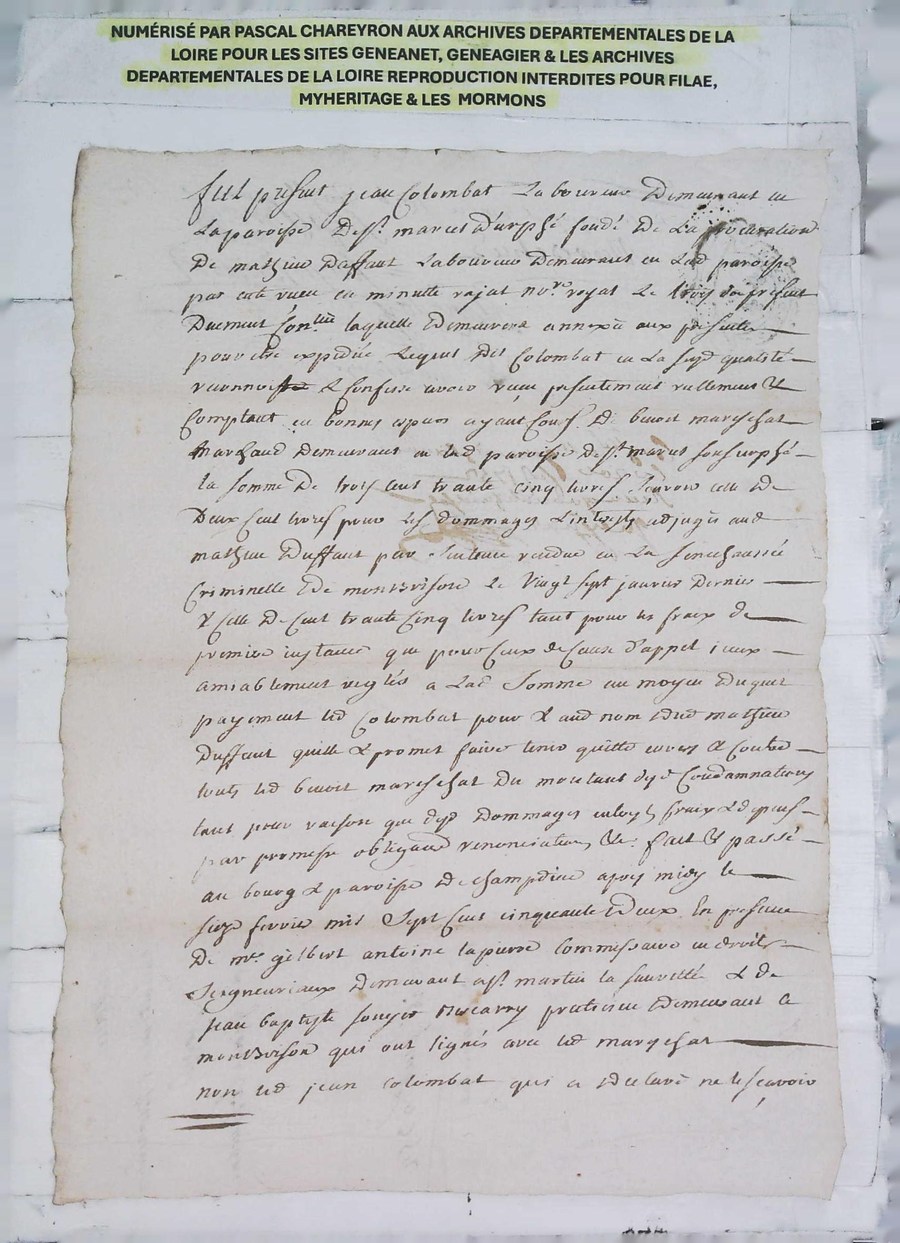 NUMÉRISÉ PAR PASCAL CHAREYRON AUX ARCHIVES DEPARTEMENTALES DE LA
LOIRE POUR LES SITES GENEANET, GENEAGIER & LES ARCHIVES
DEPARTEMENTALES DE LA LOIRE REPRODUCTION INTERDITES POUR FILAE,
MYHERITAGE & LES MORMONS
fut present jean Colombat Laboureur Demeurant en
La paroisse De st. marcel d'urphé fondé De La procuration
De mathieu Duffaut Laboureur Demeurant en Lad paroisse
par acte receu en minutte rajat no.re royal Le trois du present
Duement Con.llé laquelle Demeurera annexée aux presentes
pour etre expediée Lequel dit Colombat en La susd qualité
reconnoit & Confesse avoir receu presentement reellement &
Comptant en bonnes especes ayant Cours De benoit mareschat
Marchand Demeurant en lad paroisse De st. marcel
la somme De trois Cent trante cinq livres scavoir celle De
Deux Cent livres pour Les dommages & interests adjugés aud
mathieu Duffaut par sentence rendue en La senechaussée
Criminelle De montbrison Le Vingt sept janvier Dernier
& Celle De Cent trante Cinq livres tant pour les fraix de
premiere instance que pour Ceux de Cause d'appel iceux
amiablement reglés a Lad Somme au moyen Duquel
payement led Colombat pour & aud nom dud mathieu
Duffaut quitte & promet faire tenir quitte envers & Contre
touts led benoit mareschat Du montant desd Condamnations
tant pour raison que desd Dommages interests fraix & depens
par promesse obligaōn renonciations &c. fait & passé
au bourg & paroisse De champdieu apres midy le
seize fevrier mil Sept Cent cinquante Deux En presence
De mre. gilbert antoine lapierre Commissaire en droits
Seigneuriaux Demeurant a st. martin la sauveté & de
jean baptiste praticien Demeurant a
montbrison qui ont signés avec led mareschat
non led jean Colombat qui a declaré ne le scavoir